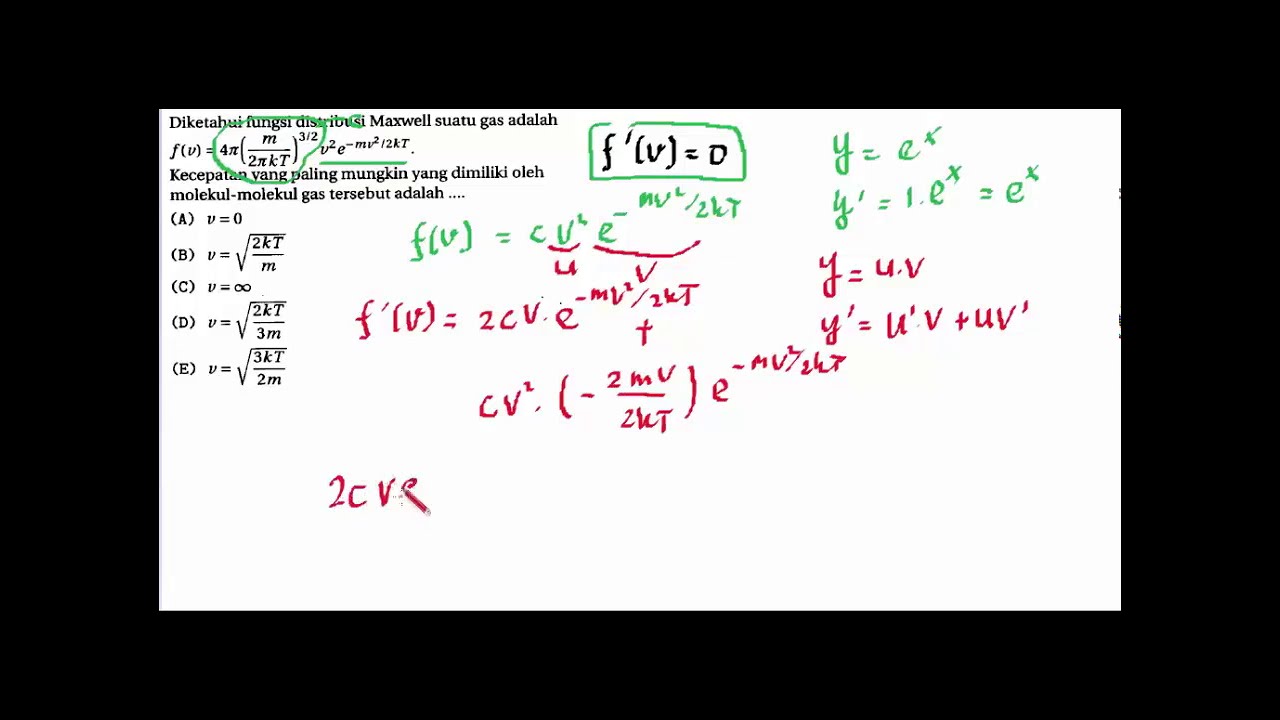 Diketahui fungsi distribusi Maxwell suatu gas adalah
f(v) = 4π(m/2πkT)^3/2 v²e^−mv²/2kT.
Kecepatan yang paling mungkin yang dimiliki oleh
molekul-molekul gas tersebut adalah ....
(A) v = 0
(B) v = √(2kT/m)
(C) v = ∞
(D) v = √(2kT/3m)
(E) v = √(3kT/2m)
f'(v) = 0
f(v) = cv² e^−mv²/2kT
u
v
f'(v) = 2cv. e^−mv²/2kT
+
cv². (−2mv/2kT) e^−mv²/2kT
2cve
y = e^x
y' = 1.e^x = e^x
y = u.v
y' = u'.v + uv'